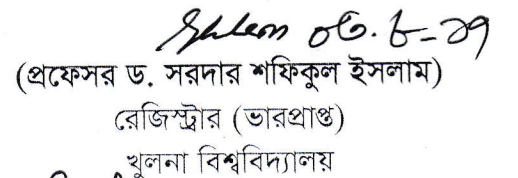 ০৬.৮-১৭
(প্রফেসর ড. সরদার শফিকুল ইসলাম)
রেজিস্ট্রার (ভারপ্রাপ্ত)
খুলনা বিশ্ববিদ্যালয়